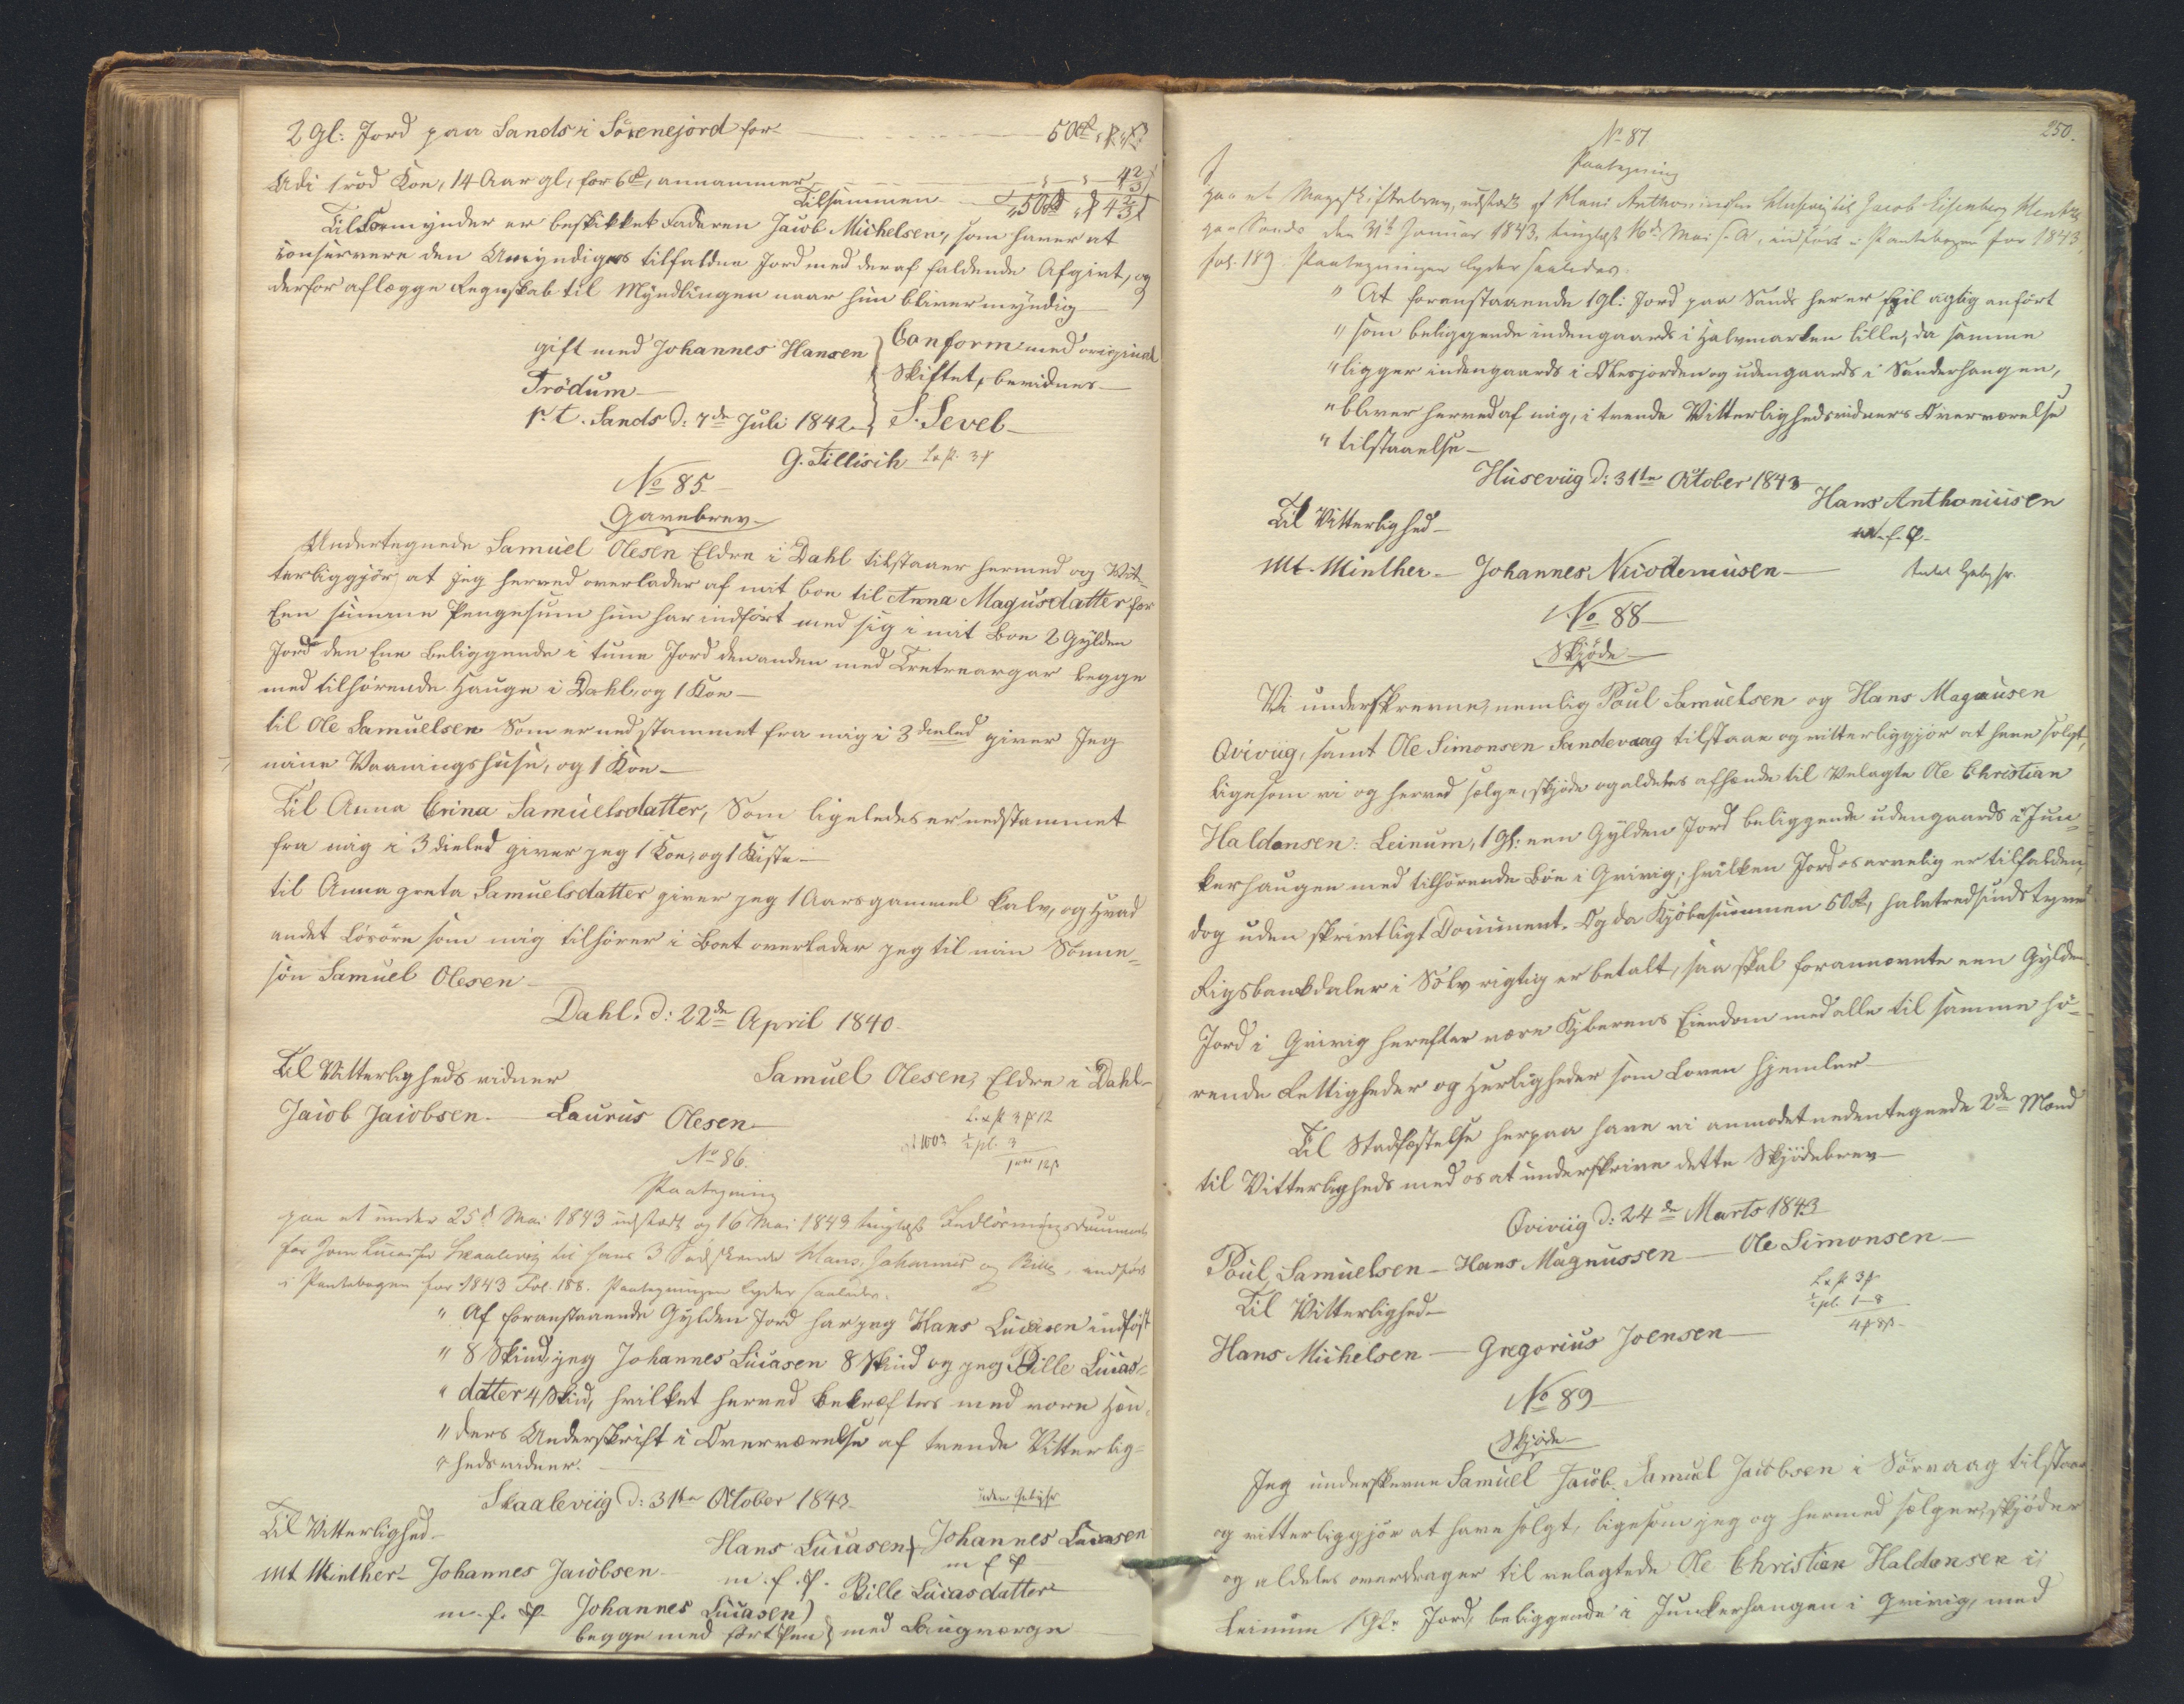 2 Gl: Jord paa Sands i Sörenejord for 50
Udi 1 röd Koe, 14 Aar gl, for 6, annammer 4 2/3
Tilsammen 50 4 2/3
Til Formynder er beskikket Faderen Jacob Michelsen, som haver at
conservere den Umyndiges tilfaldne Jord med deraf faldende Afgivt, og
derfor aflægge Regnskab til Myndlingen naar hun bliver myndig
gift med Johannes Hansen
Trödum
p.t. Sands d: 7de Juli 1842
Conform med original
Skiftet, bevidnes
S. Sevel
G. Tillisch
No 85
Gavebrev
Undertegnede Samuel Olesen Eldre i Dahl tilstaaer hermed og Vit-
terliggjör at jeg herved overlader af mit boe til Anna Magusdatter for
Een summe Pengesum hun har indfört med sig i mit Boe 2 Gylden
Jord den Ene beliggende i tune Jord den anden med Tretreargar begge
med tilhörende Hauge i Dahl, og 1 Koe
til Ole Samuelsen Som er nedstammet fra mig i 3 dieled giver Jeg
mine Vaaningshuse, og 1 Koe
Til Anna Crina Samuelsdatter, Som ligeledes er nedstammet
fra mig i 3 dieled giver jeg 1 Koe, og 1 Kiste
til Anna greta Samuelsdatter giver jeg 1 Aarsgammel Kalv, og Hvad
andet Lösöre som mig tilhörer i Boet overlader jeg til min Sönne-
sön Samuel Olesen
Dahl. d: 22de April 1840
Til Vitterligheds vidner
Samuel Olesen, Eldre i Dahl
Jacob Jacobsen Laurus Olesen
No 86.
Paategning
paa et under 25de Mai 1843 udstædt og 16 Mai 1843 tinglæst Indlösningsdocument
for Joen Lucassen Skaalevig til hans 3 Södskende Hans, Johannes og Bille, indfört
i Pantebogen for 1843 Fol. 188. Paategningen lyder saaledes.
" Af foranstaaende Gylden Jord har jeg Hans Lucasen indlöst
" 8 Skind, jeg Johannes Lucasen 8 Skind og jeg Bille Lucas-
" datter 4 Skind, hvilket herved bekræftes med vore Hæn-
" ders Underskrift i Overværelse af tvende Vitterlig-
" hedsvidner.
Skaaleviig d: 31te October 1843
uden Gebyhr
Til Vitterlighed
Hans Lucasen Johannes Lucasen
Mt Winther Johannes Jacobsen m. f. P. m f P
m. f. P. Johannes Lucasen) Bille Lucasdatter
begge med fört Pen med Laugværge
250.
No 87
Paategning
paa et Mageskiftebrev, udstædt af Hans Anthoniussen Husevig til Jacob Eisenberg
paa Sands den 31te Januar 1843, tinglæst 16de Mai s. A., indfört i Pantebogen for 1843,
fol. 189. Paategningen lyder saaledes:
" At foranstaaende 1 Gl: Jord paa Sands her er feil agtig anfört
" som beliggende indengaards i Halvmarken lille, da samme
" ligger indengaards i Økesjorden og udengaards i Sunderhaugen,
" bliver herved af mig, i tvende Vitterlighedsvidners Overværelse
" tilstaaelse
Huseviig d: 31te October 1843
Hans Anthoniusen
m. f. P.
Til Vitterlighed
Mt. Winther Johannes Nicodemusen
uden Gebyhr.
No 88
Skjöde
Vi underskrevne, nemlig Poul Samuelsen og Hans Magnusen
Qviviig, samt Ole Simonsen Sandevaag tilstaae og vitterliggjör at have solgt,
ligesom vi og herved sælge, skjöde og aldeles afhænde til Velagte Ole Christian
Haldansen: Leinum, 1 Gl: een Gylden Jord beliggende udengaards i Jun-
kerhaugen med tilhörende Böe i Qvivig; hvilken Jord os arvelig er tilfalden,
dog uden skriftligt Document. Og da Kjöbesummen 50, halvtredsindstyve
Rigsbankdaler i Sölv rigtig er betalt, saa skal forannævnte een Gylden
Jord i Qvivig herefter være Kjberens Eiendom med alle til samme hö-
rende Rettigheder og Herligheder som Loven hjemler
Til Stadfæstelse herpaa have vi anmodet nedentegnede 2de Mænd
til Vitterligheds med os at underskrive dette Skjödebrev
Qviviig d: 24de Marts 1843
Poul Samuelsen Hans Magnussen Ole Simonsen
Til Vitterlighed
Hans Michelsen Gregorius Joensen
No 89
Skjöde
Jeg underskrevne Samuel Jacob. Samuel Jacobsen i Sörvaag tilstaaer
og vitterliggjör at have solgt, ligesom jeg og hermed sælger, skjöder
og aldeles overdrager til velagtede Ole Christian Haldansen i
Leinum 1 Gl: Jord, beliggende i Junkerhaugen i Qvivig, med